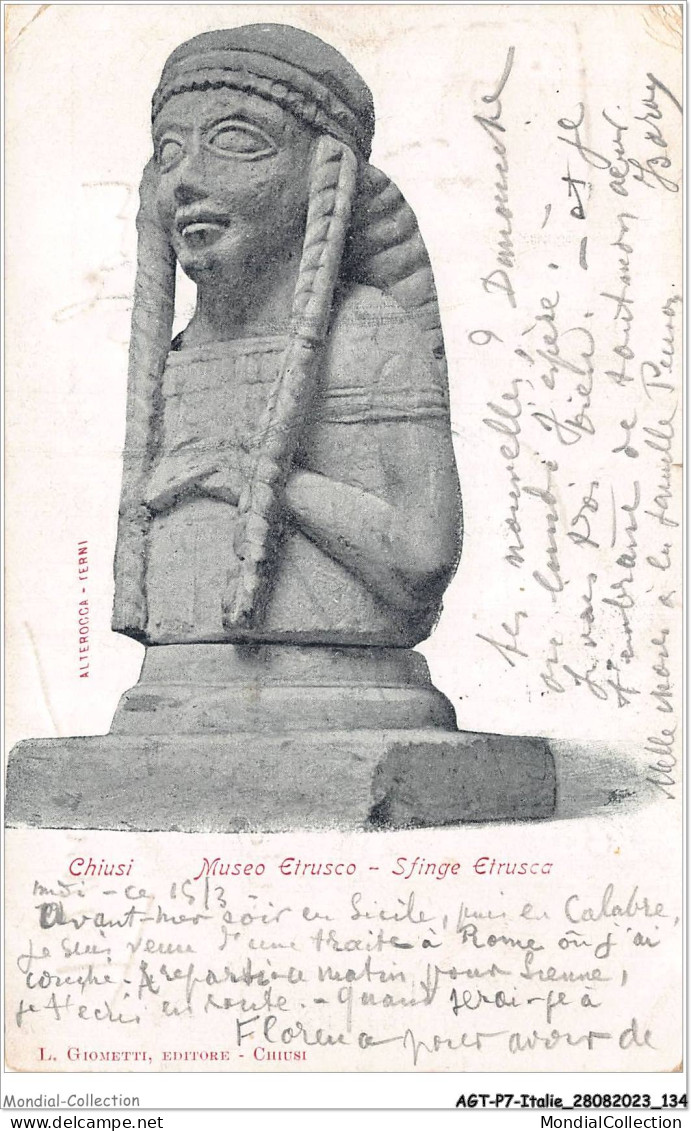 ALTEROCCA - TERNI
Chiusi Museo Etrusco - Sfinge Etrusca
midi - ce 15/3
Avant-hier soir en Sicile, puis en Calabre,
je suis venu d'une traite à Rome où j'ai
couché. Je repars ce matin pour Sienne,
je t'écris en route. - Quand serai-je à
Florence pour avoir de
tes nouvelles,
ce lundi j'espère! -
Je vais bien. - et je
t'embrasse de tout mon cœur
Mille choses à la famille
L. GIOMETTI, EDITORE - CHIUSI
Mondial-Collection
AGT-P7-Italie_28082023_134
www.delcampe.net
MondialCollection